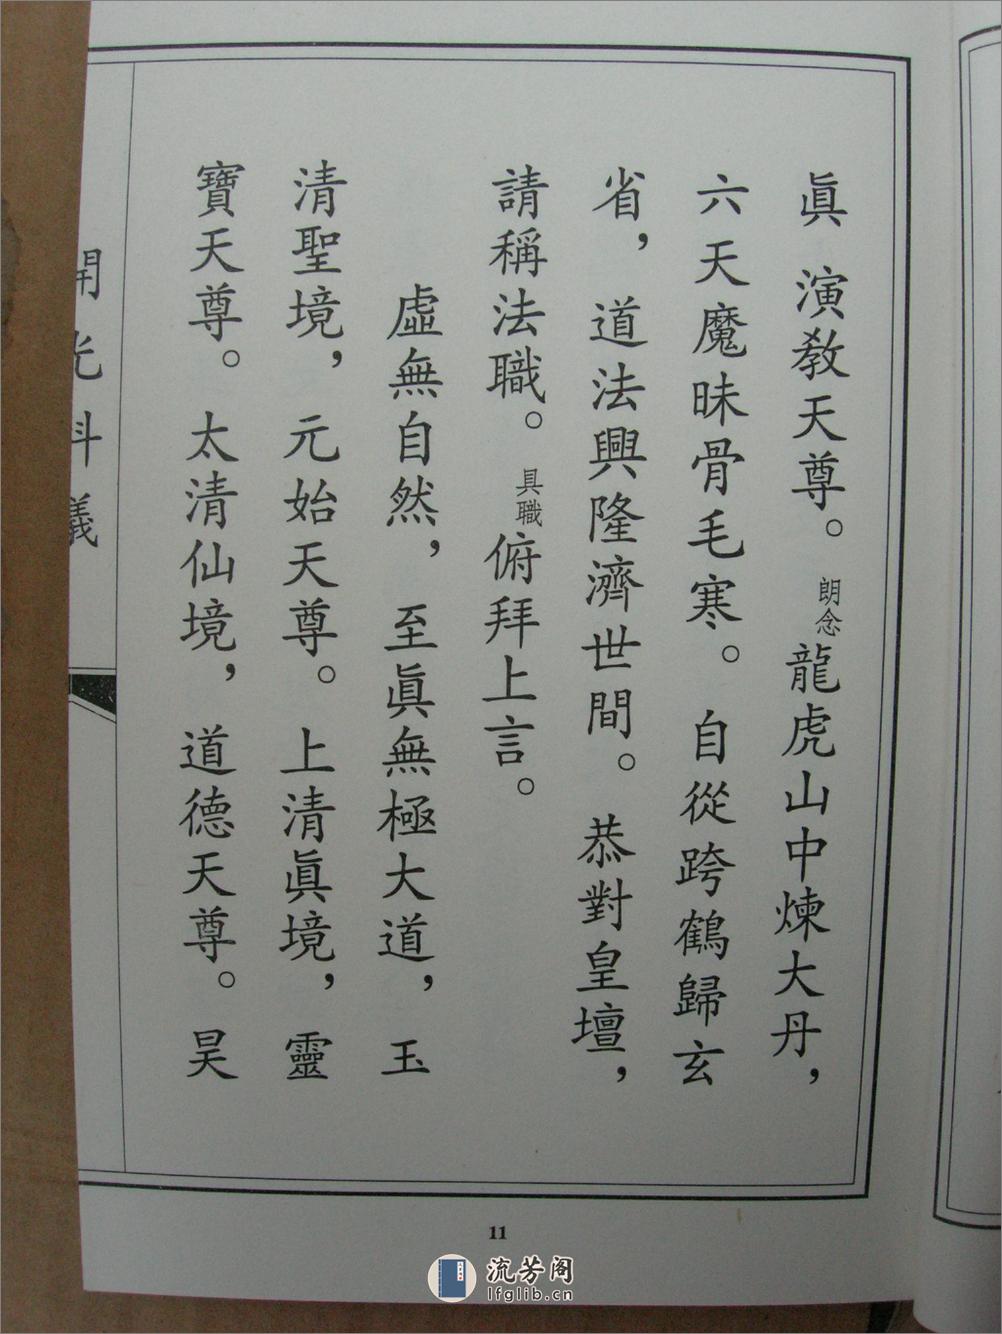 眞　演教天尊。朗念龍虎山中煉大丹，
六天魔昧骨毛寒。自從跨鶴歸玄
省，道法興隆濟世間。恭對皇壇，
請稱法職。具職俯拜上言。
虛無自然，至眞無極大道，玉
清聖境，元始天尊。上清眞境，靈
寶天尊。太清仙境，道德天尊。昊
開光科儀
11
流芳阁
lfglib.cn